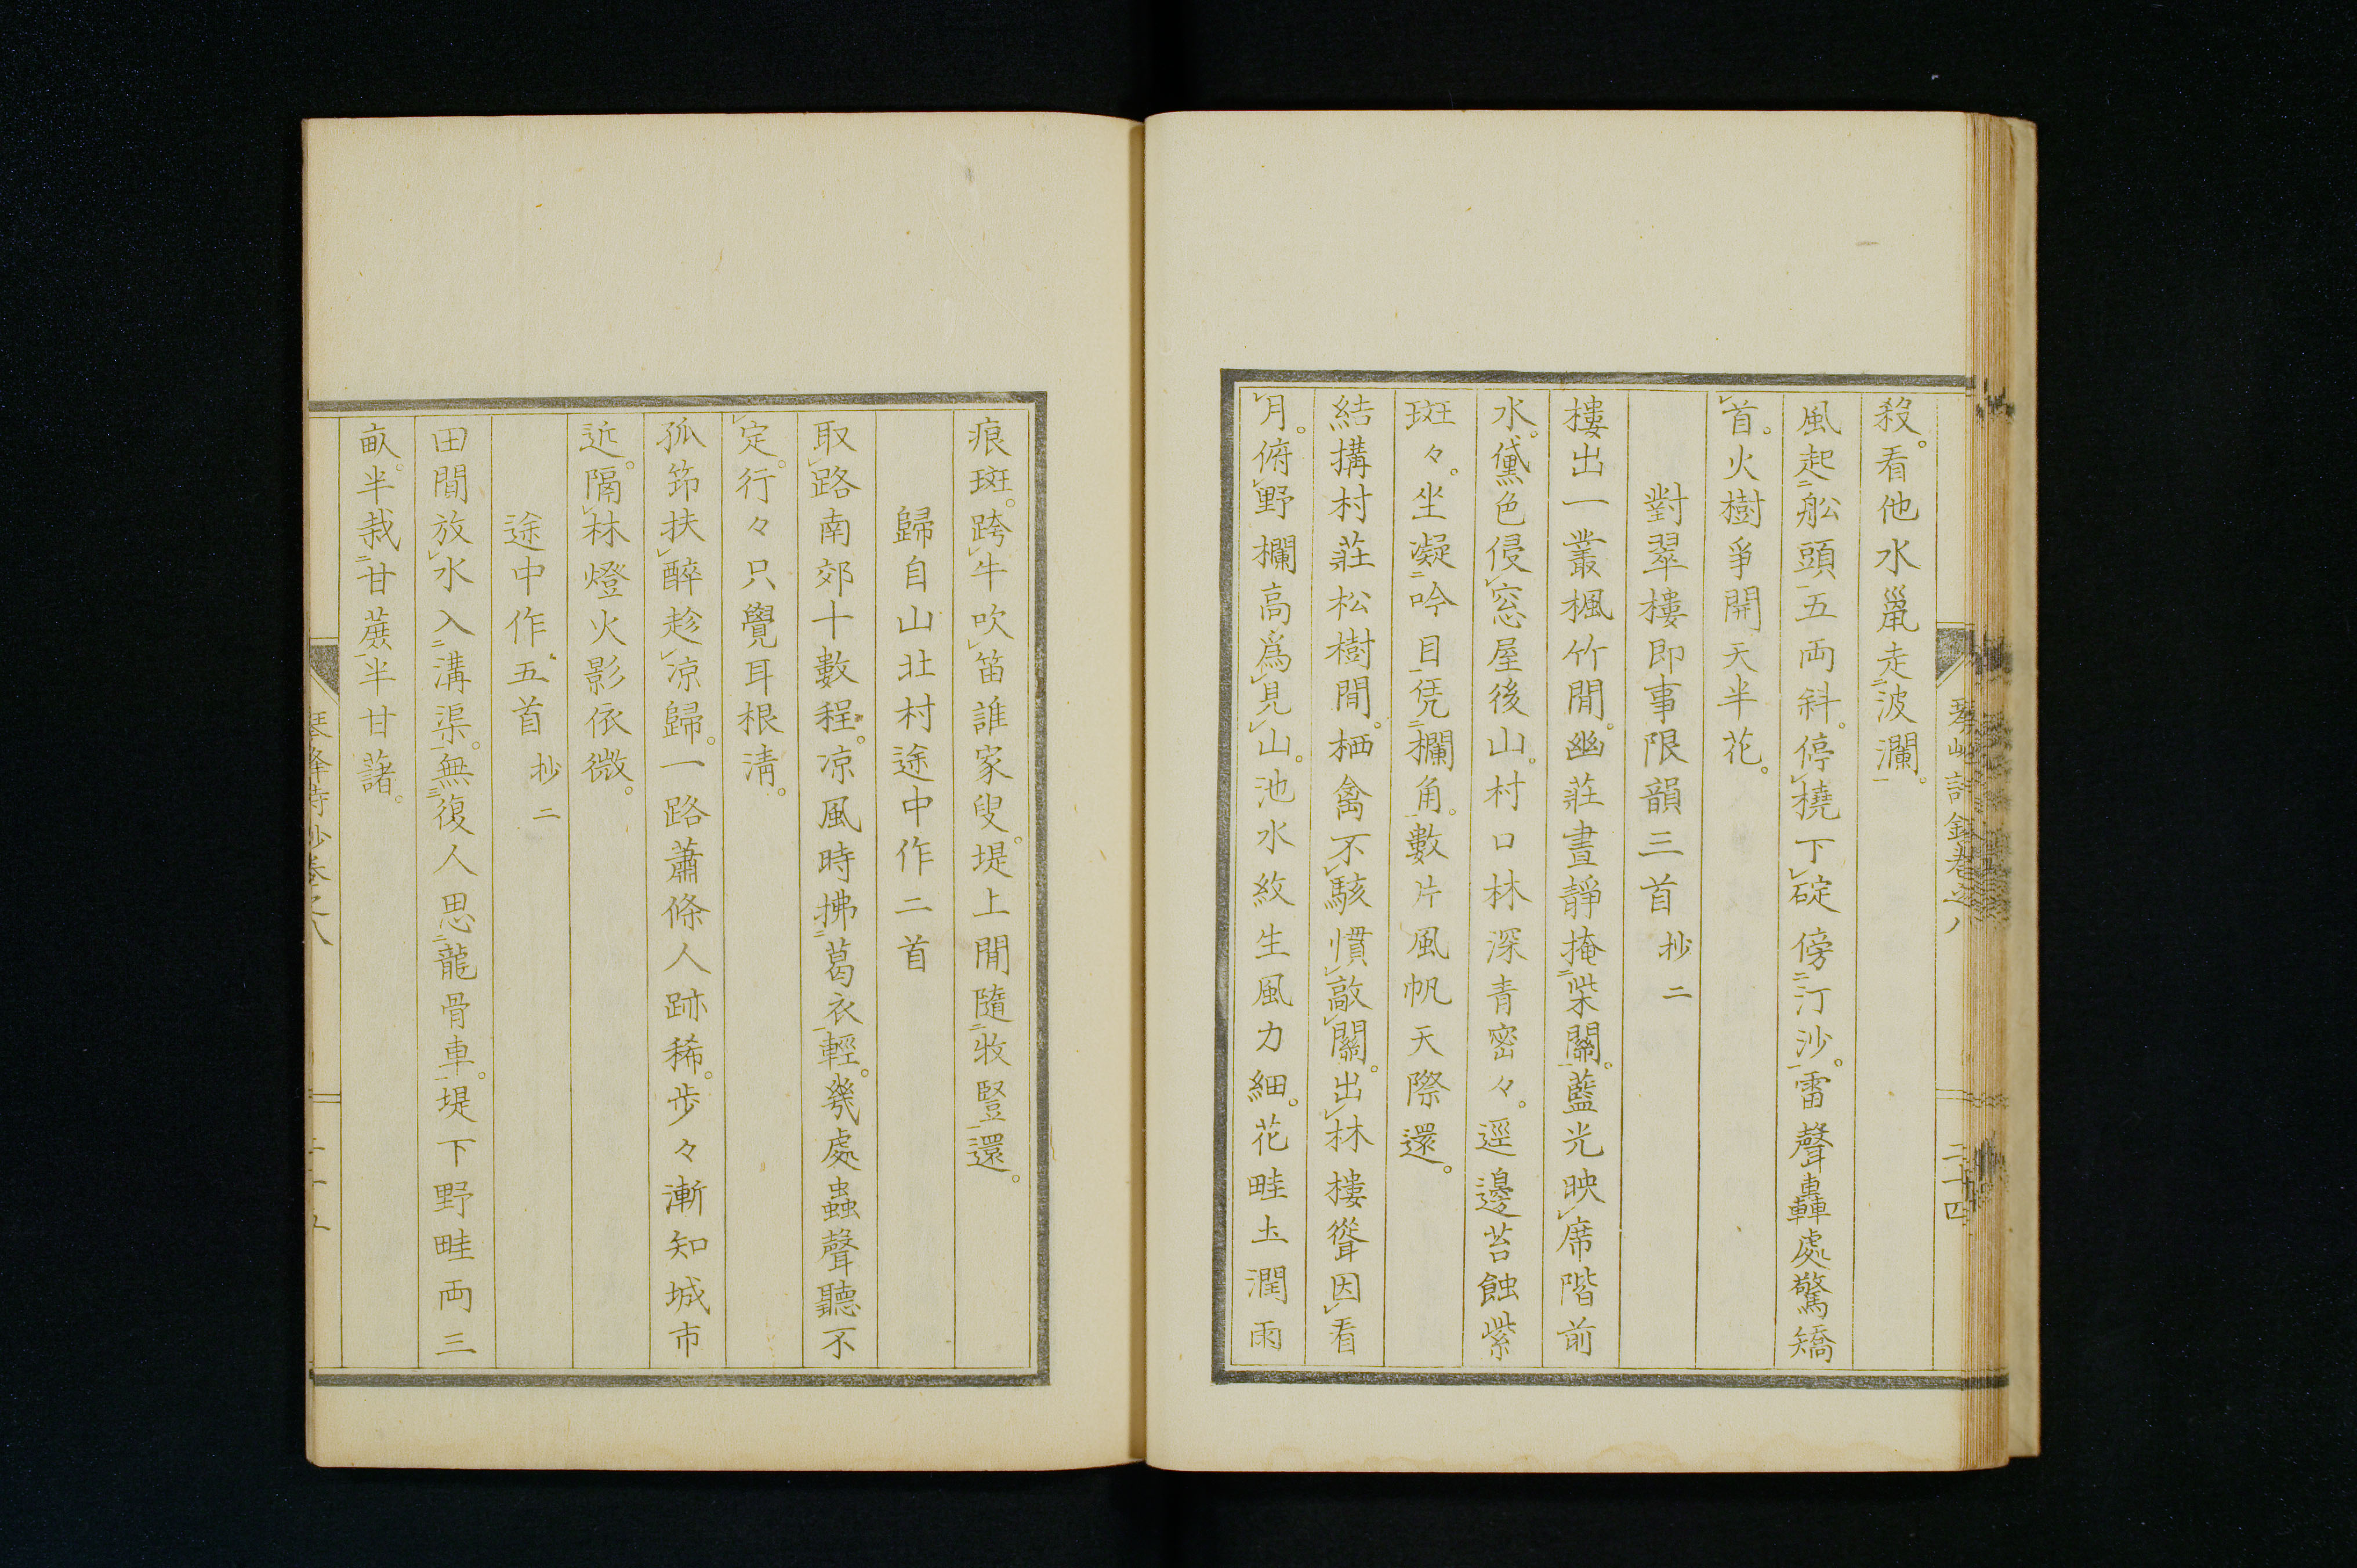 殺。看他水鼠走二波瀾一。
風起二舩頭一五両斜。停レ橈下レ碇傍二汀沙一。雷聲轟處驚矯
レ首。火樹爭開天半花。
對翠樓即事限韻三首 抄二
樓出一叢楓竹間。幽莊晝靜掩二柴關一。藍光映レ席階前
水。黛色侵レ窓屋後山。村口林深青密々。逕邊苔蝕紫
斑々。坐凝二吟目一凭二欄角一。數片風帆天際還。
結搆村莊松樹間。栖禽不レ駭慣レ敲レ關。出レ林樓聳因レ看
レ月。俯レ野欄高爲レ見レ山。池水紋生風力細。花畦土潤雨
痕斑。跨レ牛吹レ笛誰家叟。堤上閒隨二牧豎一還。
歸自山北村途中作二首
取レ路南郊十數程。凉風時拂二葛衣一輕。幾處蟲聲聽不
レ定。行々只覺耳根清。
孤筇扶レ醉趁レ凉歸。一路蕭條人跡稀。步々漸知城市
近。隔レ林燈火影依微。
途中作五首 抄二
田間放レ水入二溝渠一。無三復人思二龍骨車一。堤下野畦両三
畝。半栽二甘蔗一半甘藷。
卷之八
二十四